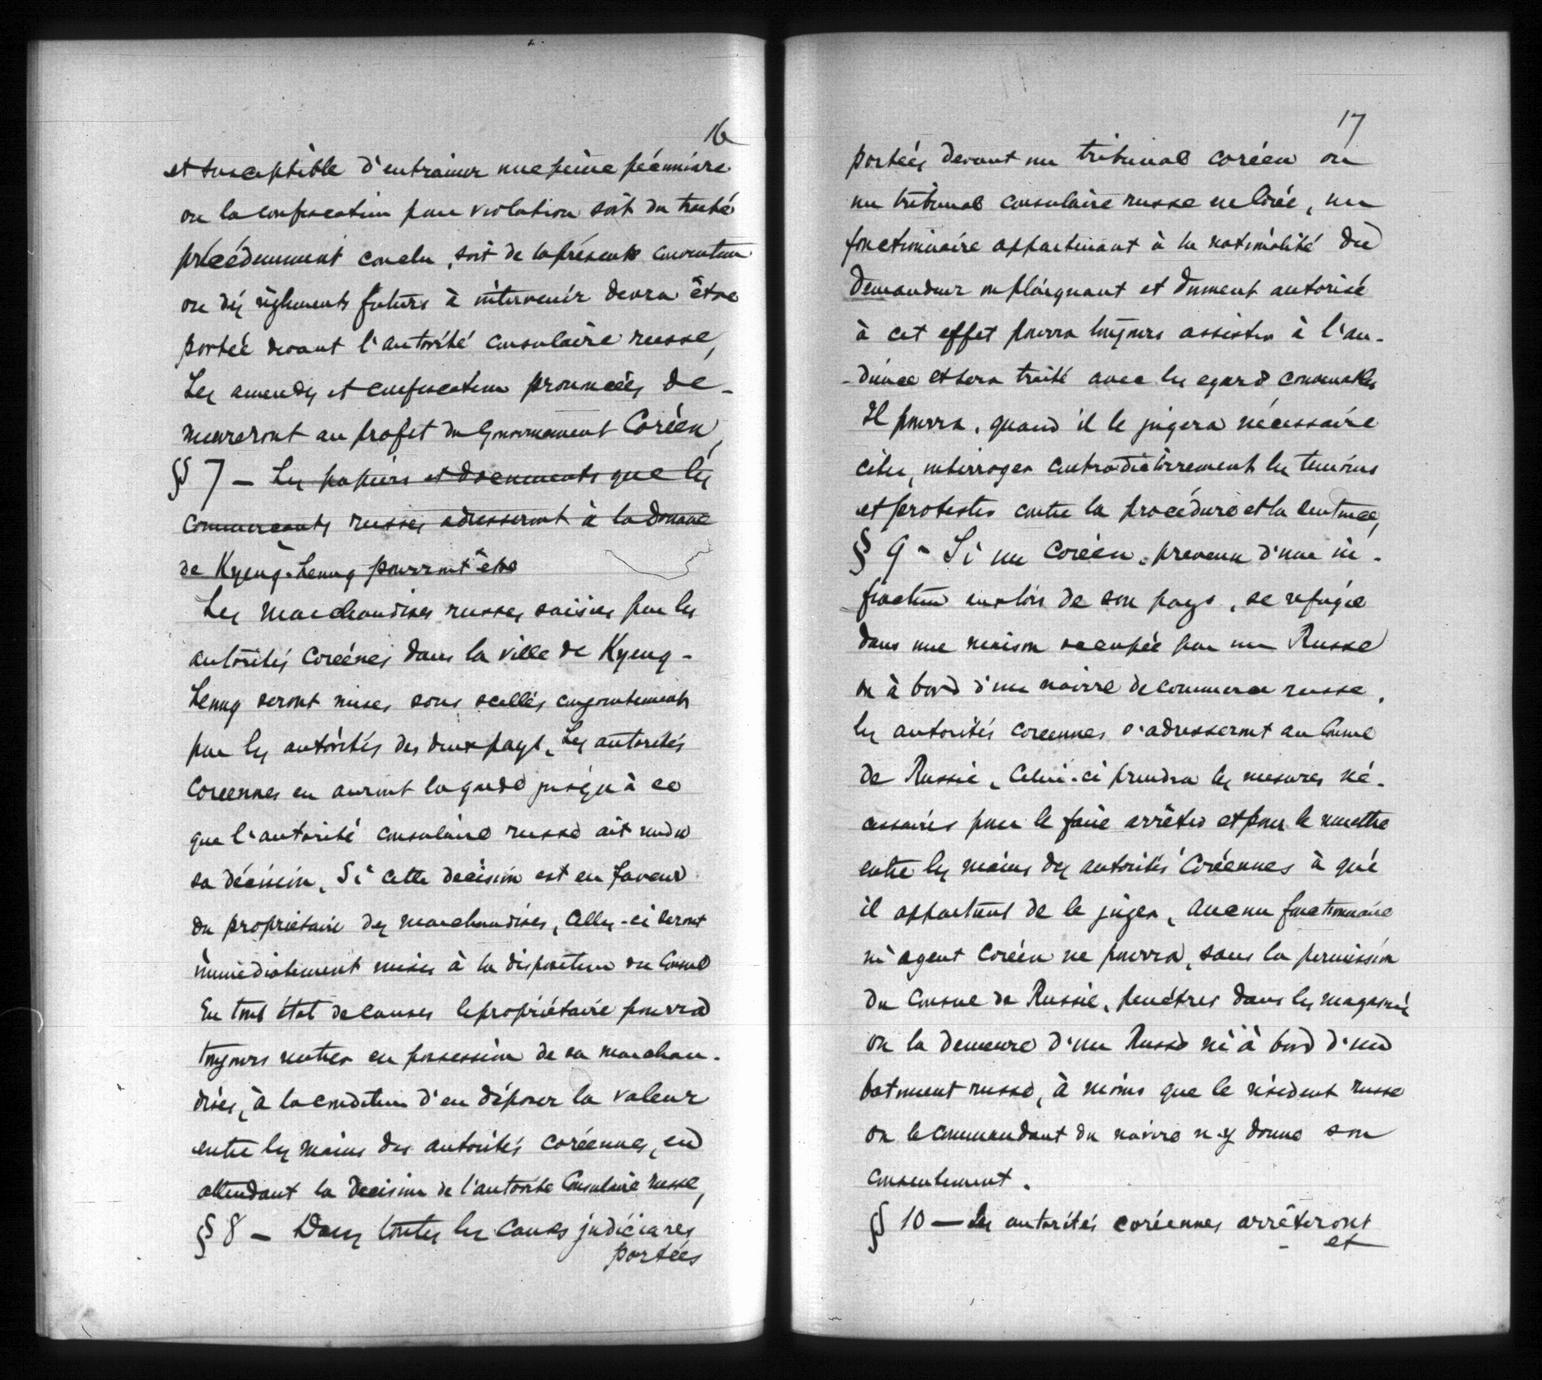 16
et susceptible d'entrainer une peine pécuniaire
ou la confiscation pour violation soit du traité
précédemment conclu, soit de la présente convention
ou des règlements futurs à intervenir devra être
portée devant l'autorité consulaire russe,
Les amendes et confiscation prononcées de-
meureront au profit du Gouvernement Coréen,
§ 7 — Les papiers et documents que les
commerçants russes adresseront à la douane
de Kyeng-heung pourront être
Les marchandises russes saisies par les
autorités coréénes dans la ville de Kyeng-
heung seront mises sous scellés conjointement
par les autorités des deux pays. Les autorités
coreennes en auront la garde jusqu'à ce
que l'autorité consulaire russe ait rendu
sa décision. Si cette decision est en faveur
du propriétaire des marchandises, celles-ci seront
immédiatement mises à la disposition du Consul
En tout état de causes le propriétaire pourra
toujours rentrer en possession de sa marchan-
dises, à la condition d'en déposer la valeur
entre les mains des autorités coréennes, en
attendant la décision de l'autorité Consulaire russe,
§ 8 — Dans toutes les causes judiciares
portées
17
portées devant un tribunal coréen ou
un tribunal consulaire russe en Corée, un
fonctionnaire appartenant à la nationalité du
demandeur ou plaignant et dument autorisé
à cet effet pourra toujours assister à l'au-
-dience et sera traité avec les egards convenables
Il pourra, quand il le jugera nécessaire
citer, interroger contradictoirement les temoins
et protester contre la procédure et la sentence,
§ 9 - Si un Coréen, prevenu d'une in-
fraction aux lois de son pays, se refugie
dans une maison occupée par un Russe
ou à bord d'un navire de commerce russe,
les autorités coreennes s'adresseront au Consul
de Russie, Celui-ci prendra les mesures né-
cessaires pour le faire arrêter et pour le remettre
entre les mains des autorités Coréennes à qui
il appartient de le juger, Aucun fonctionnaire
ni agent Coréen ne pourra, sans la permission
du Consul de Russie, penétrer dans les magasins
ou la demeure d'un Russe ni à bord d'un
batiment russe, à moins que le résident russe
ou le commandant du navire n'y donne son
consentement.
§ 10 — Les autorités coréennes arrêteront
et